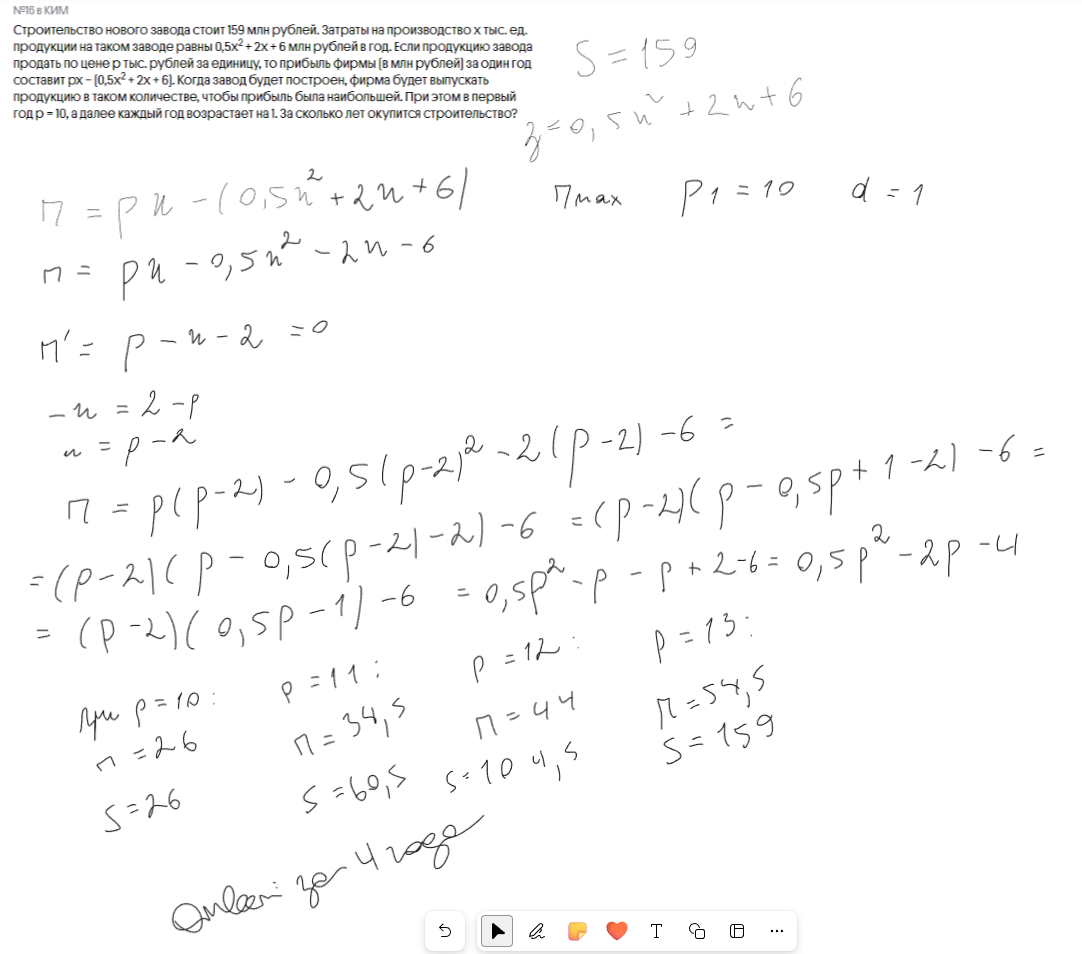 №16 в КИМ
Строительство нового завода стоит 159 млн рублей. Затраты на производство x тыс. ед.
продукции на таком заводе равны 0,5x² + 2x + 6 млн рублей в год. Если продукцию завода
продать по цене p тыс. рублей за единицу, то прибыль фирмы (в млн рублей) за один год
составит px − (0,5x² + 2x + 6). Когда завод будет построен, фирма будет выпускать
продукцию в таком количестве, чтобы прибыль была наибольшей. При этом в первый
год p = 10, а далее каждый год возрастает на 1. За сколько лет окупится строительство?
S = 159
z = 0,5x² + 2x + 6
П = px - (0,5x² + 2x + 6)
Пmax p1 = 10 d = 1
П = px - 0,5x² - 2x - 6
П' = p - x - 2 = 0
-x = 2 - p
x = p - 2
П = p(p-2) - 0,5(p-2)² - 2(p-2) - 6 =
= (p-2)(p - 0,5(p-2) - 2) - 6 = (p-2)(p - 0,5p + 1 - 2) - 6 =
= (p-2)(0,5p - 1) - 6 = 0,5p² - p - p + 2 - 6 = 0,5p² - 2p - 4
При p = 10: p = 11: p = 12: p = 13:
П = 26 П = 34,5 П = 44 П = 54,5
S = 26 S = 60,5 S = 104,5 S = 159
Ответ: за 4 года
T